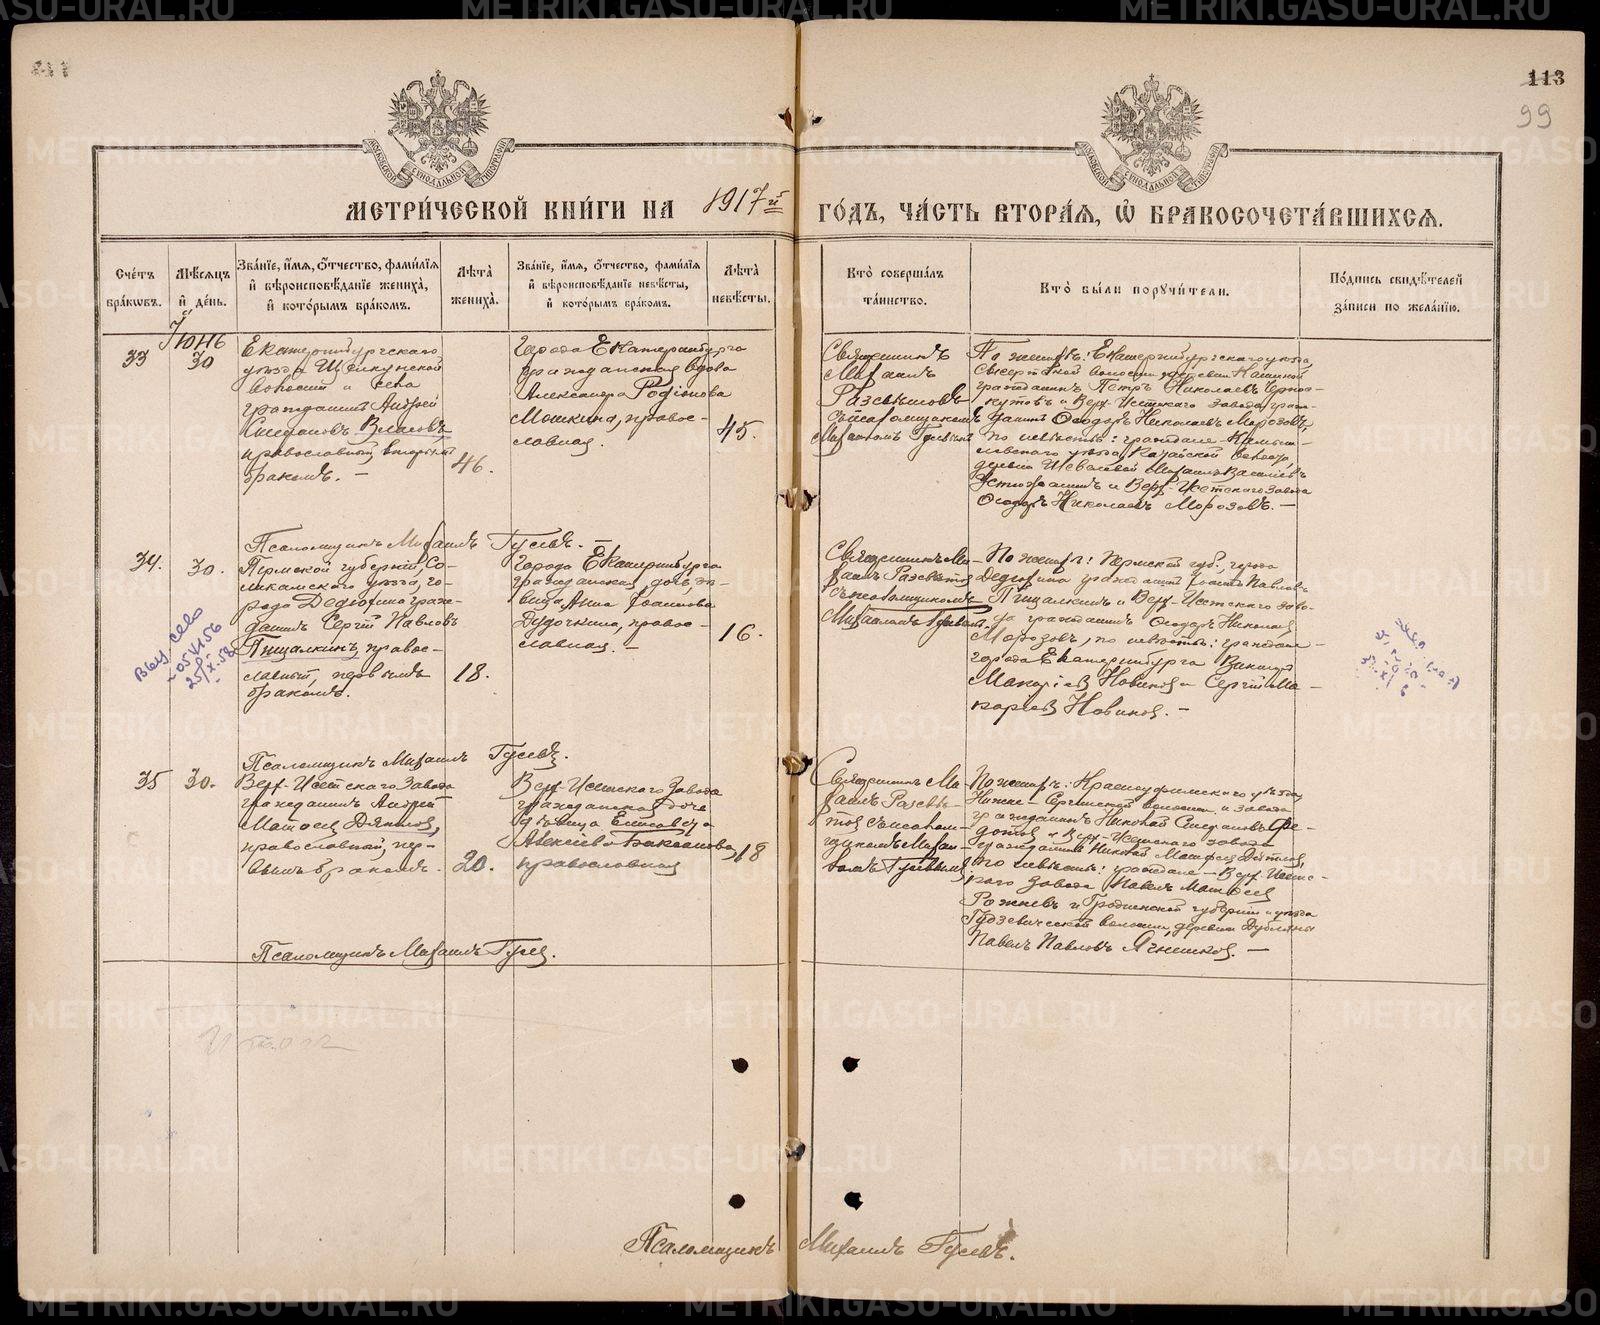 113
99
МЕТРИ́ЧЕСКОЙ КНИ́ГИ НА 1917й ГО́ДЪ, ЧА́СТЬ ВТОРА́Я, Ѡ БРАКОСОЧЕТА́ВШИХСЯ.
Сче́тъ бра́кѡвъ.
Мѣ́сяцъ и҆ де́нь.
Зва́нїе, и҆́мя, ѻ҆́тчество, фамѝлїя и҆ вѣроисповѣ́данїе жениха̀, и҆ кото́рымъ бра́комъ.
Лѣта̀ жениха̀.
Зва́нїе, и҆́мя, ѻ҆́тчество, фамѝлїя и҆ вѣроисповѣ́данїе невѣ́сты, и҆ кото́рымъ бра́комъ.
Лѣта̀ невѣ́сты.
Кто̀ соверша́лъ та́инство.
Кто̀ бы́ли порꙋчи́тели.
По́дпись свидѣ́телей за́писи по жела́нїю.
Іюнь
33
30
Екатеринбургскаго
уѣзда Щелкунской
волости и села
гражданинъ Андрей
Стефановъ Власовъ,
православный, вторымъ
бракомъ. —
46.
Города Екатеринбурга
гражданская вдова
Александра Родіонова
Мошкина, правос-
лавная.
45.
Священникъ
Михаилъ
Разсвѣтовъ
съ псаломщикомъ
Михаиломъ Гусевымъ
По женихѣ: Екатеринбургскаго уѣзда,
Сысертской волости, деревни
гражданинъ Петръ Николаевъ Черно-
кутовъ и Верх-Исетскаго завода граж-
данинъ Ѳеодоръ Николаевъ Морозовъ,
по невѣстѣ: граждане — Камыш-
ловскаго уѣзда, волости,
деревни Михаилъ Васильевъ
и Верх-Исетскаго завода
Ѳеодоръ Николаевъ Морозовъ. —
Псаломщикъ Михаилъ Гусевъ. —
34.
30.
Пермской губерніи, Со-
ликамскаго уѣзда, го-
рода Дедюхина граж-
данинъ Сергій Павловъ
Пищалкинъ, правос-
лавный, первымъ
бракомъ.
18.
Города Екатеринбурга
гражданская дочь, дѣ-
вица Анна Іоаннова
Дудочкина, правос-
лавная. —
16.
Священникъ Ми-
хаилъ Разсвѣтовъ
съ псаломщикомъ
Михаиломъ Гусевымъ.
По женихѣ: Пермской губ., города
Дедюхина гражданинъ Іоаннъ Павловъ
Пищалкинъ и Верх-Исетскаго заво-
да гражданинъ Ѳеодоръ Николаев
Морозовъ, по невѣстѣ: граждане —
города Екатеринбурга
Макаріев Новиков и Сергій Ма-
каріев Новиков. —
Псаломщикъ Михаилъ Гусевъ.
35
30.
Верх-Исетскаго Завода
гражданинъ Андрей
Матѳеев Дятлов,
православный, пер-
вымъ бракомъ.
20.
Верх-Исетскаго Завода
гражданская дочь
дѣвица Елисавета
Алексіева
православная
18
Священникъ Ми-
хаилъ Разсвѣ-
товъ съ псалом-
щикомъ Михаи-
ломъ Гусевымъ.
По женихѣ: Красноуфимскаго уѣзда,
Нижне-Сергинской волости и завода
гражданинъ Николай Стефановъ Ѳе-
дотовъ и Верх-Исетскаго завода
гражданинъ Николай Матѳеев Дятлов,
по невѣстѣ: граждане — Верх-Исетс-
каго завода Павелъ Матѳеев
Рожневъ и Гродненской губерніи и уѣзда
волости, деревни
Павелъ Павловъ Ячниковъ. —
Псаломщикъ Михаилъ Гусев.
Псаломщикъ Михаилъ Гусевъ.
METRIKI.GASO-URAL.RU